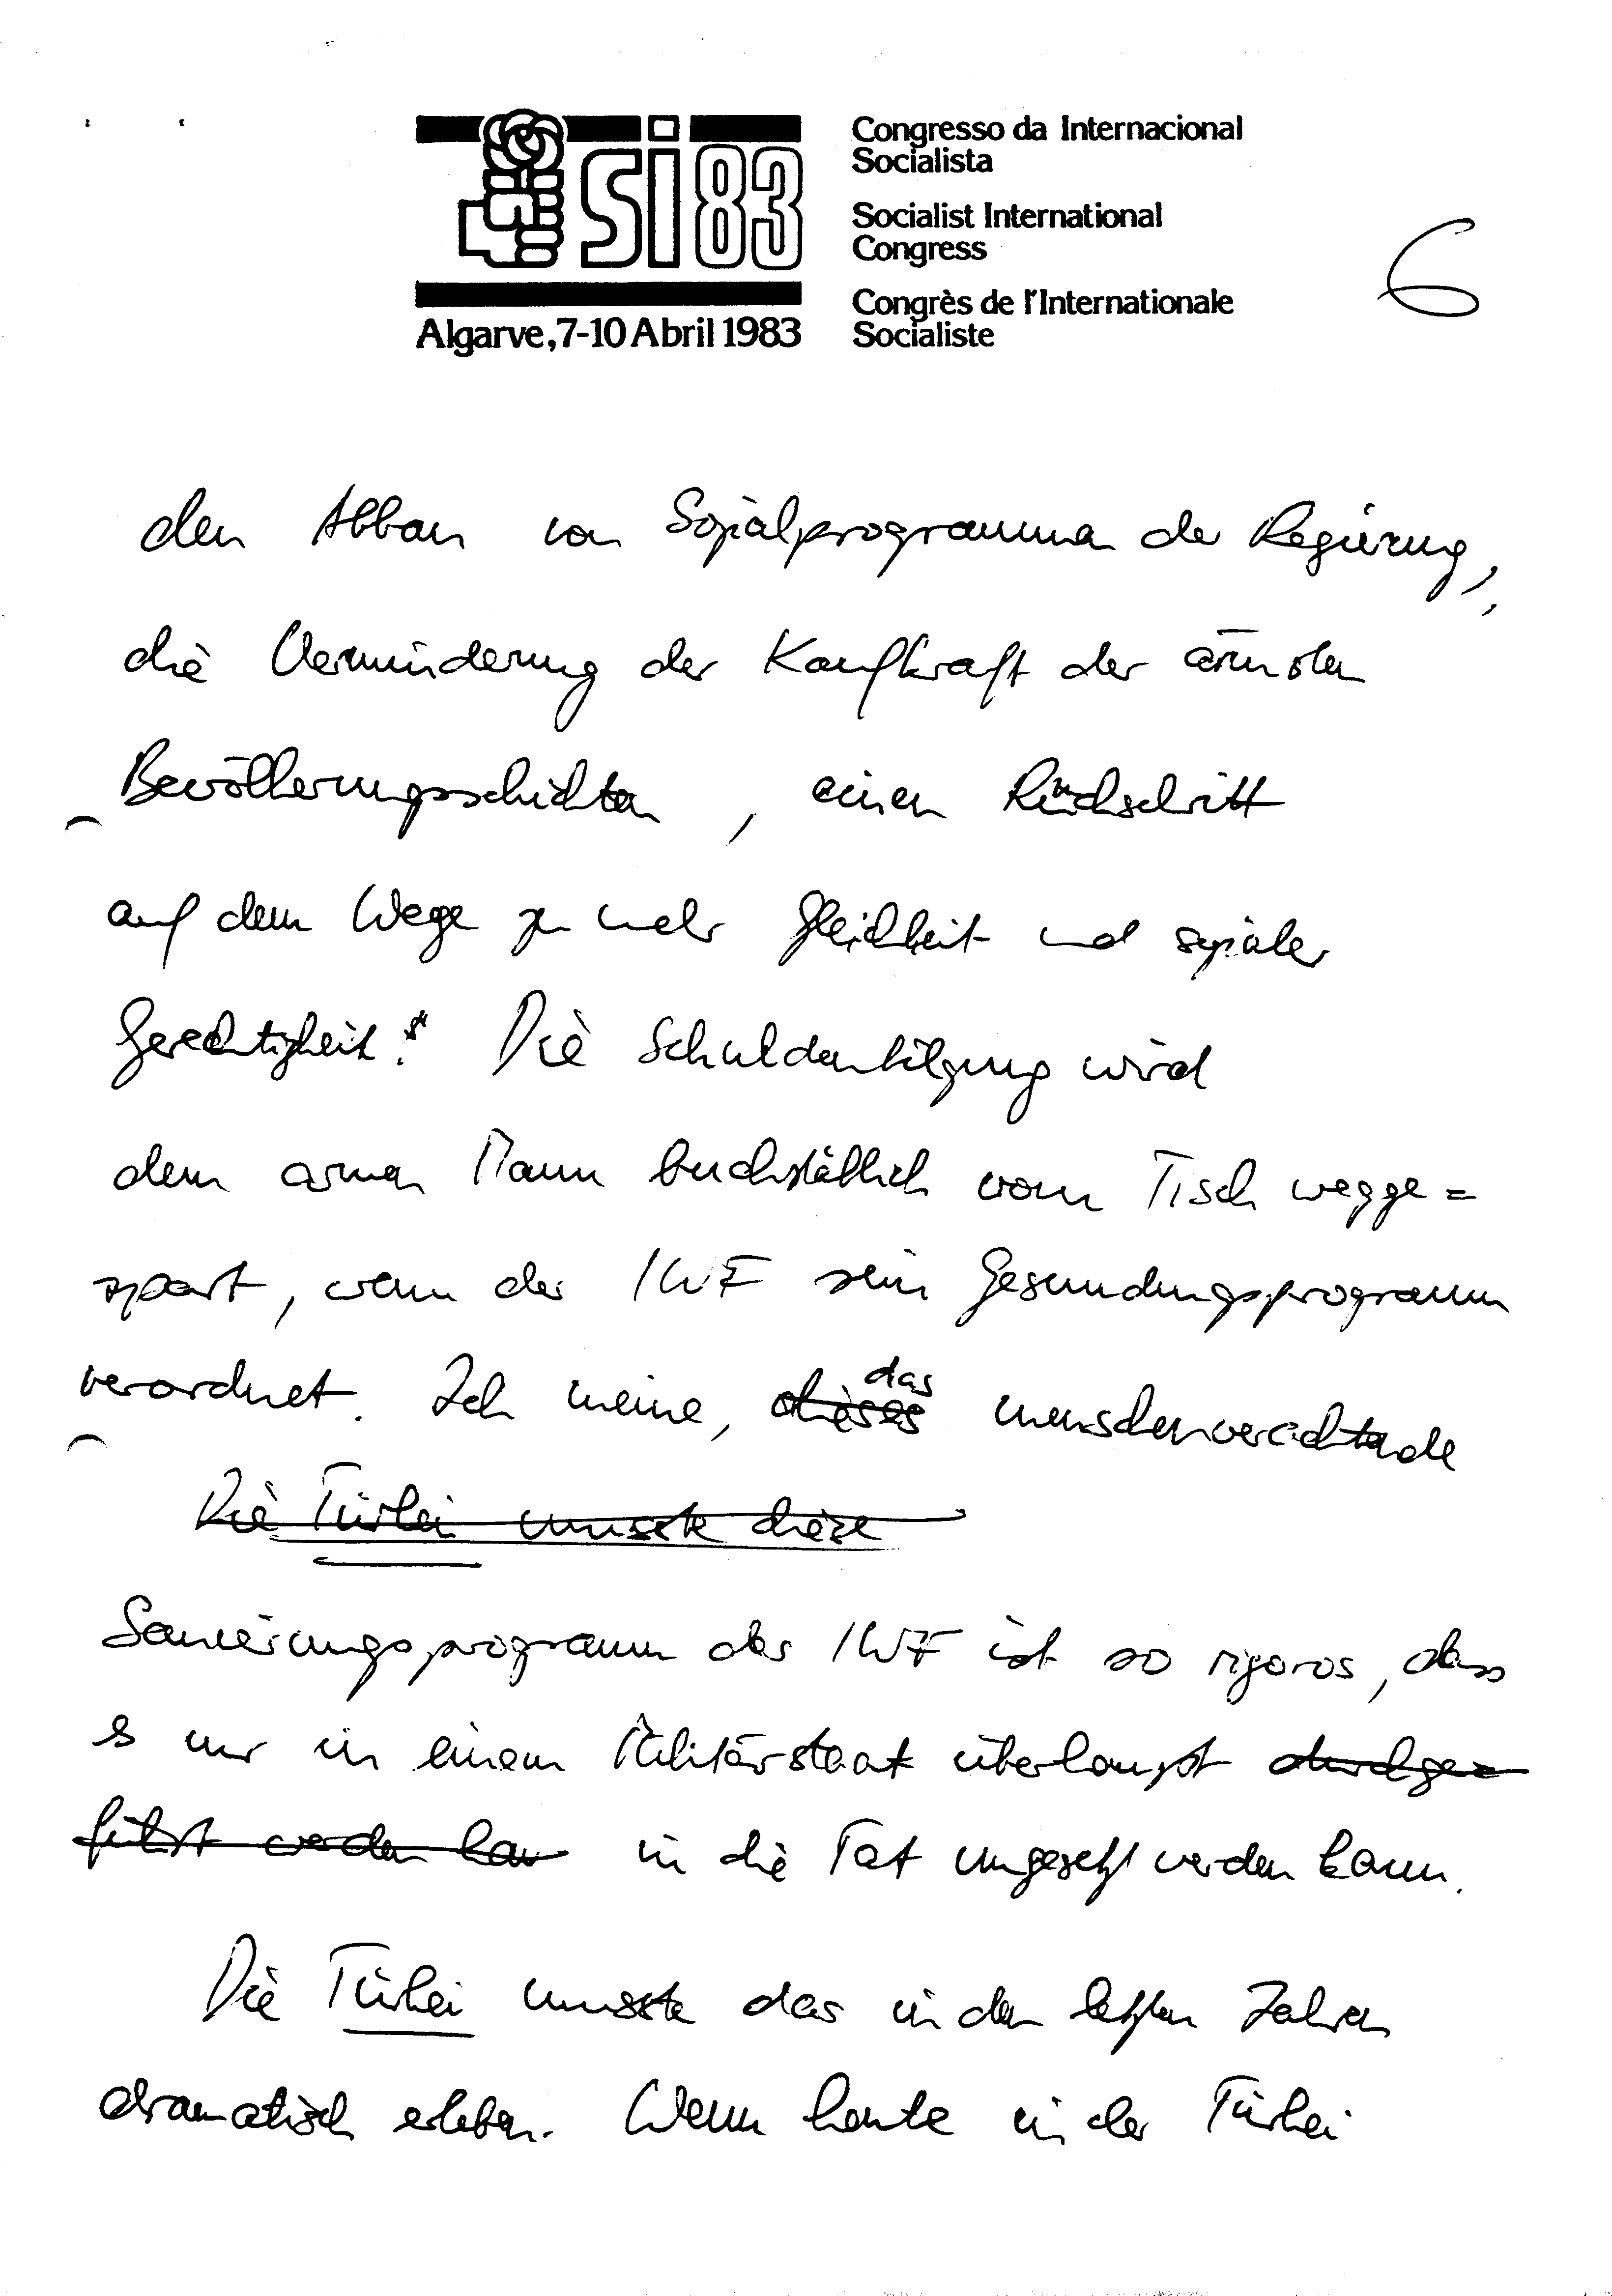 SI 83
Algarve, 7-10 Abril 1983
Congresso da Internacional
Socialista
Socialist International
Congress
Congrès de l'Internationale
Socialiste
6
den Abbau von Sozialprogrammen der Regierung,
die Verminderung der Kaufkraft der ärmsten
Bevölkerungsschichten, einen Rückschritt
auf dem Wege zu mehr Gleichheit und sozialer
Gerechtigkeit." Die Schuldentilgung wird
dem armen Mann buchstäblich vom Tisch wegge=
spart, wenn der IWF sein Gesundungsprogramm
verordnet. Ich meine, dieses das menschenverachtende
Die Türkei musste diese
Sanierungsprogramm des IWF ist so rigoros, dass
es nur in einem Militärstaat überhaupt durchge=
führt werden kann in die Tat umgesetzt werden kann.
Die Türkei musste das in den letzten Jahren
dramatisch erleben. Wenn heute in der Türkei